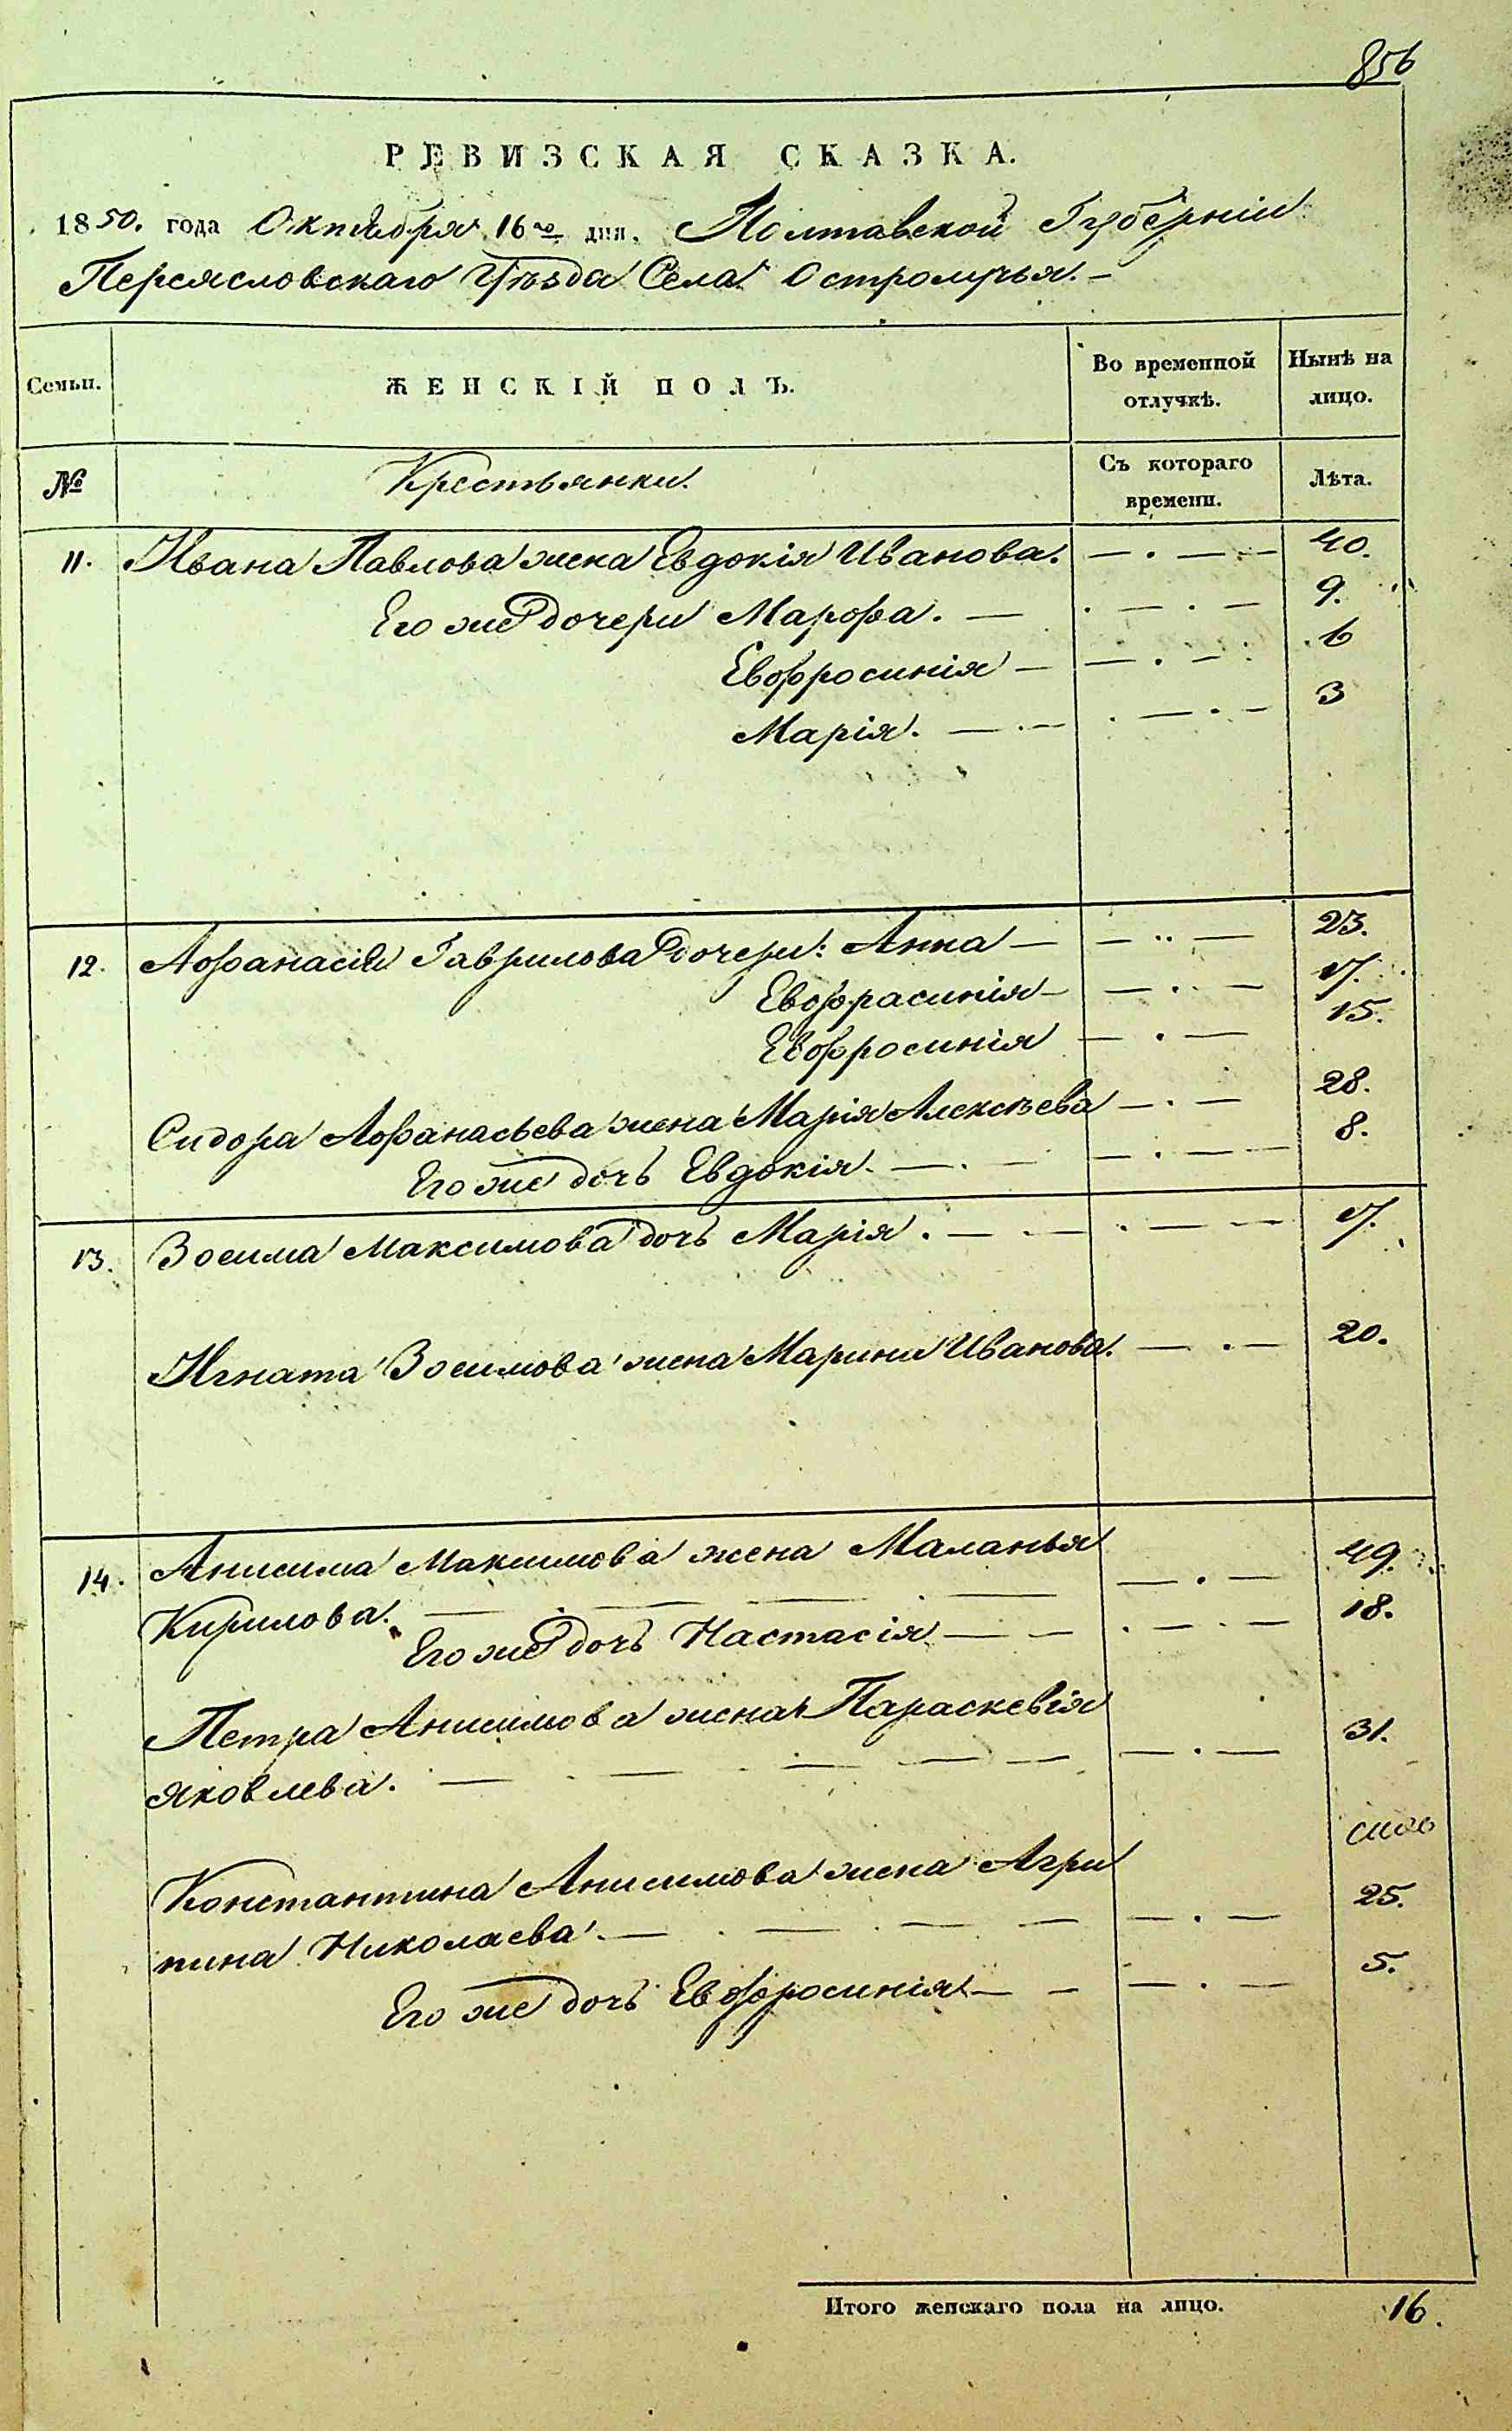 856
РЕВИЗСКАЯ СКАЗКА.
1850. года Октября 16го дня, Полтавской Губерніи
Переясловскаго Уѣзда Села Остролучья. —
Семьи. ЖЕНСКІЙ ПОЛЪ. Во временной отлучкѣ. Нынѣ на лицо.
№ Крестьянки. Съ котораго времени. Лѣта.
11. Ивана Павлова жена Евдокія Иванова. — . — 40.
Его же дочери Марфа. — . — . — 9.
Евфросинія — — . — 6
Марія. — . — . — . — 3
12. Афанасія Гаврилова дочери: Анна — — .. — 23.
Евфрасинія — — . — 17.
Евфросинія — . — 15.
Сидора Афанасьева жена Марія Алексѣева — . — 28.
Его же дочь Евдокія. — . — — . — 8.
13. Зосима Максимова дочь Марія. — . — . — — 17.
Игната Зосимова жена Марина Иванова. — . — 20.
14. Анисима Максимова жена Маланья
Кирилова. — . — — . — — . — 49.
Его же дочь Настасія — — . — . — 18.
Петра Анисимова жена Параскевія
Яковлева. — . — . — — — . — 31.
Константина Анисимова жена Агри
пина Николаева. — . — . — — — . — 25.
Его же дочь Евфросинія — — — . — 5.
Итого женскаго пола на лицо. 16.